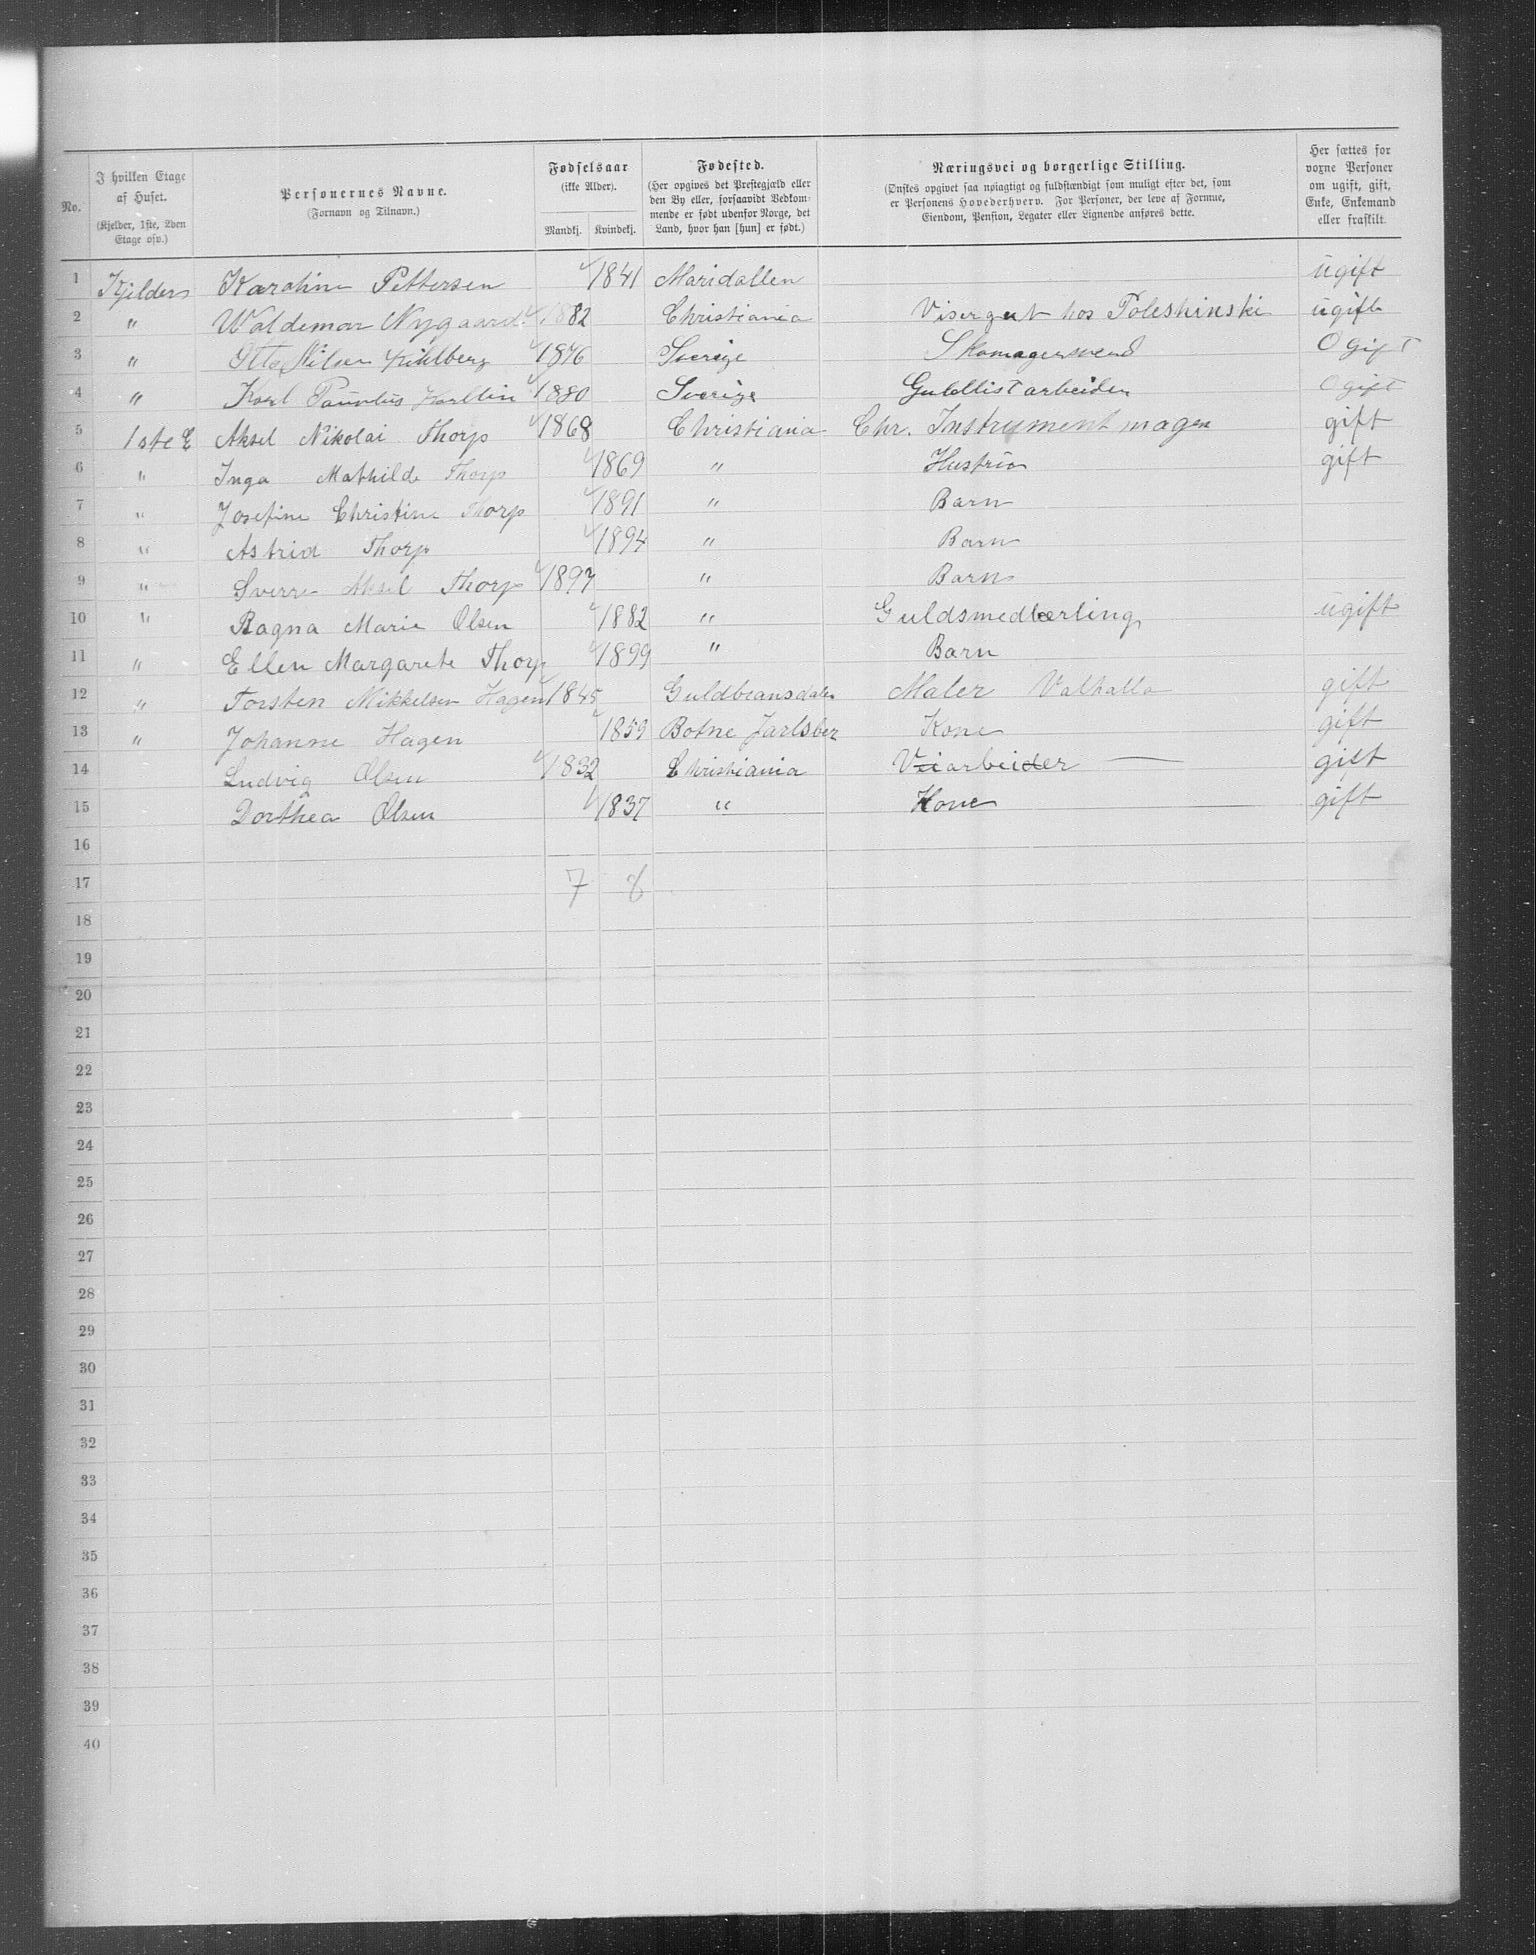 No. | I hvilken Etage af Huset. (Kjelder, 1ste, 2den Etage osv.) | Personernes Navne. (Fornavn og Tilnavn.) | Fødselsaar (ikke Alder). Mandkj. | Kvindekj. | Fødested. (Her opgives det Prestegjæld eller den By eller, forsaavidt Vedkommende er født udenfor Norge, det Land, hvor han [hun] er født.) | Næringsvei og borgerlige Stilling. (Ønskes opgivet saa nøiagtigt og fuldstændigt som muligt efter det, som er Personens Hovederhverv. For Personer, der leve af Formue, Eiendom, Pension, Legater eller Lignende anføres dette. | Her sættes for voxne Personer om ugift, gift, Enke, Enkemand eller fraskilt.
1 Kjelder Karoline Pettersen 1841 Maridallen ugift
2 " Waldemar Nygaard 1882 Christiania Visergut hos Poleshinski ugift
3 " Otto Nilsen Kihlberg 1876 Sverige Skomagersvend Ogift
4 " Karl 1880 Sverige Guldlistarbeider Ogift
5 1ste E Aksel Nikolai Thorp 1868 Christiania Chr. Instrumentmager gift
6 " Inga Mathilde Thorp 1869 " Hustrue gift
7 " Josefine Christine Thorp 1891 " Barn
8 " Astrid Thorp 1894 " Barn
9 " Sverre Aksel Thorp 1897 " Barn
10 " Ragna Marie Olsen 1882 " Guldsmedlærling ugift
11 " Ellen Margarete Thorp 1899 " Barn
12 " Torsten Mikkelsen Hagen 1845 Guldbransdalen Maler Valhalla gift
13 " Johanne Hagen 1859 Botne Jarlsber Kone gift
14 Ludvig Olsen 1832 Christiania Viarbeider — gift
15 Dorthea Olsen 1837 " Kone — gift
16
17 7 8
18
19
20
21
22
23
24
25
26
27
28
29
30
31
32
33
34
35
36
37
38
39
40